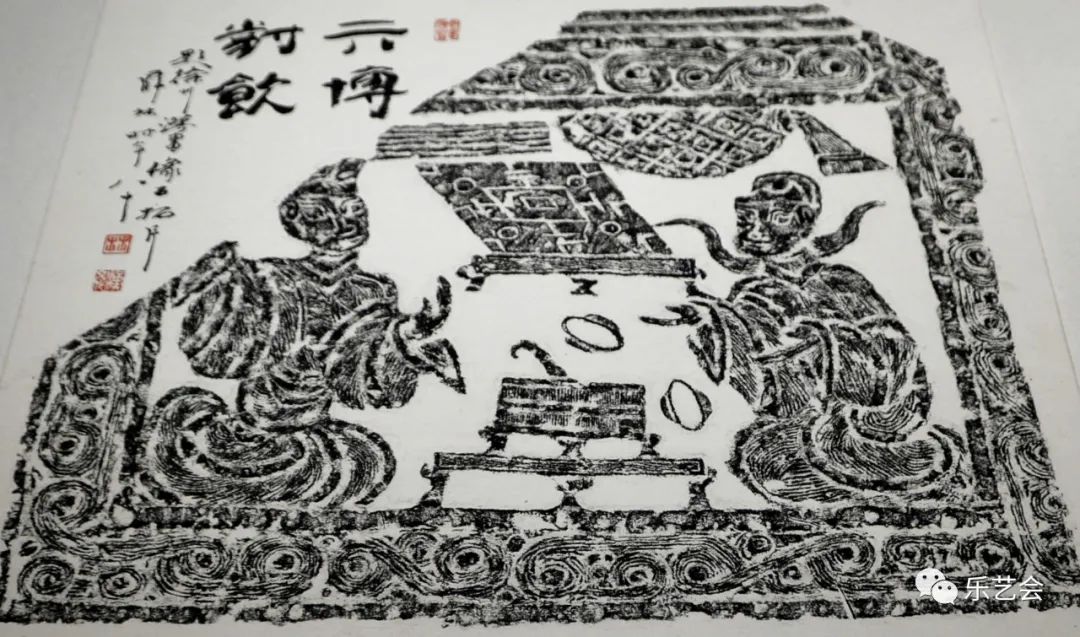 六博
對飲
徐州漢畫像石拓片
林時年八十
乐艺会